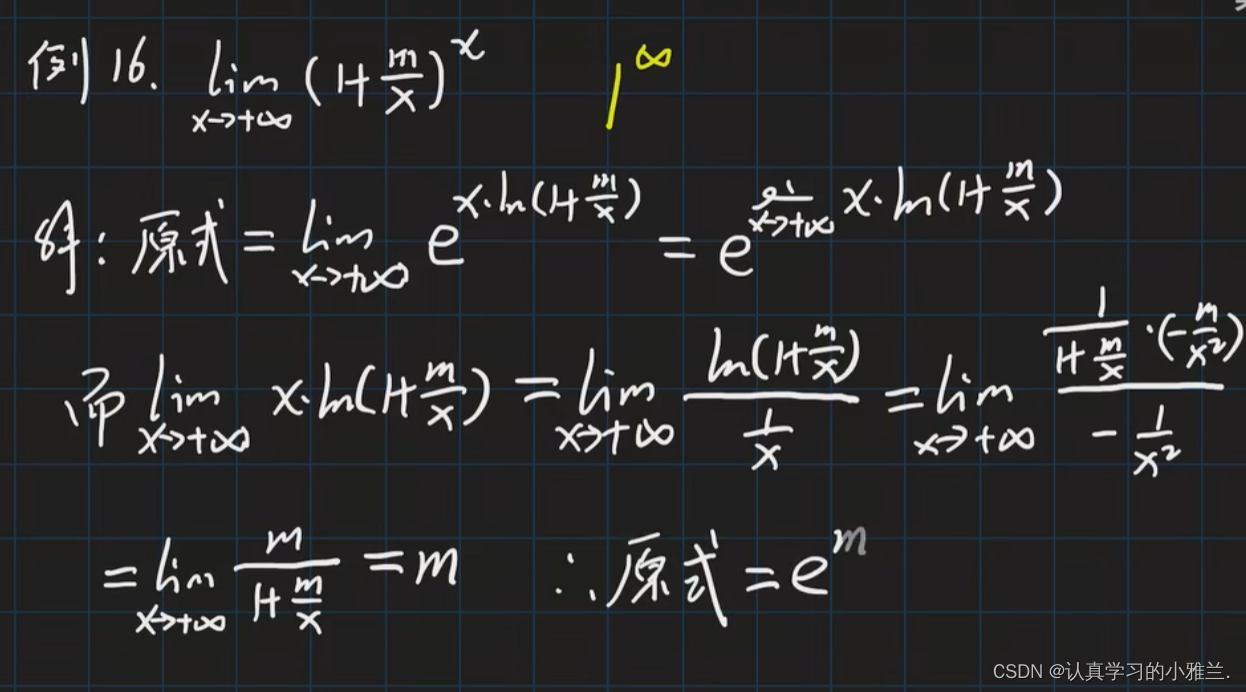 例16. lim_{x→+∞} (1+m/x)^x 1^∞
解: 原式 = lim_{x→+∞} e^{x·ln(1+m/x)} = e^{lim_{x→+∞} x·ln(1+m/x)}
而 lim_{x→+∞} x·ln(1+m/x) = lim_{x→+∞} ln(1+m/x)/(1/x) = lim_{x→+∞} (1/(1+m/x)·(-m/x²))/(-1/x²)
= lim_{x→+∞} m/(1+m/x) = m ∴原式 = e^m
CSDN @认真学习的小雅兰.